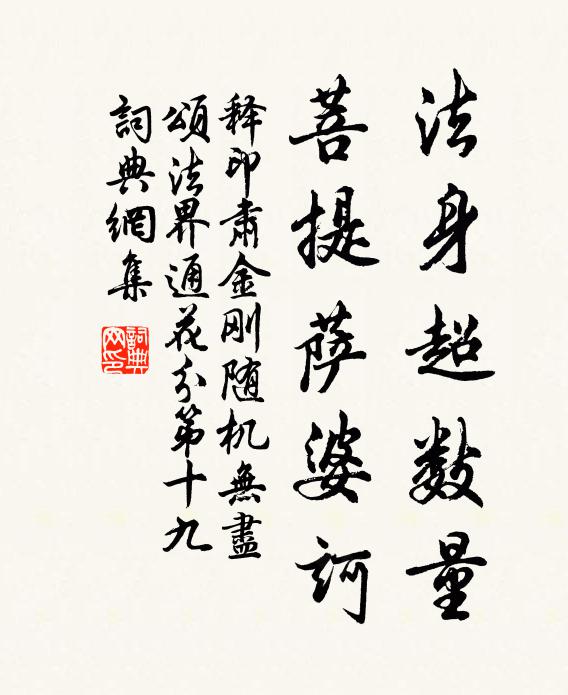 法身超数量
菩提萨婆訶
释印肃金刚随机無盡
頌法界通花分第十九
詞典網集
詞典
网印